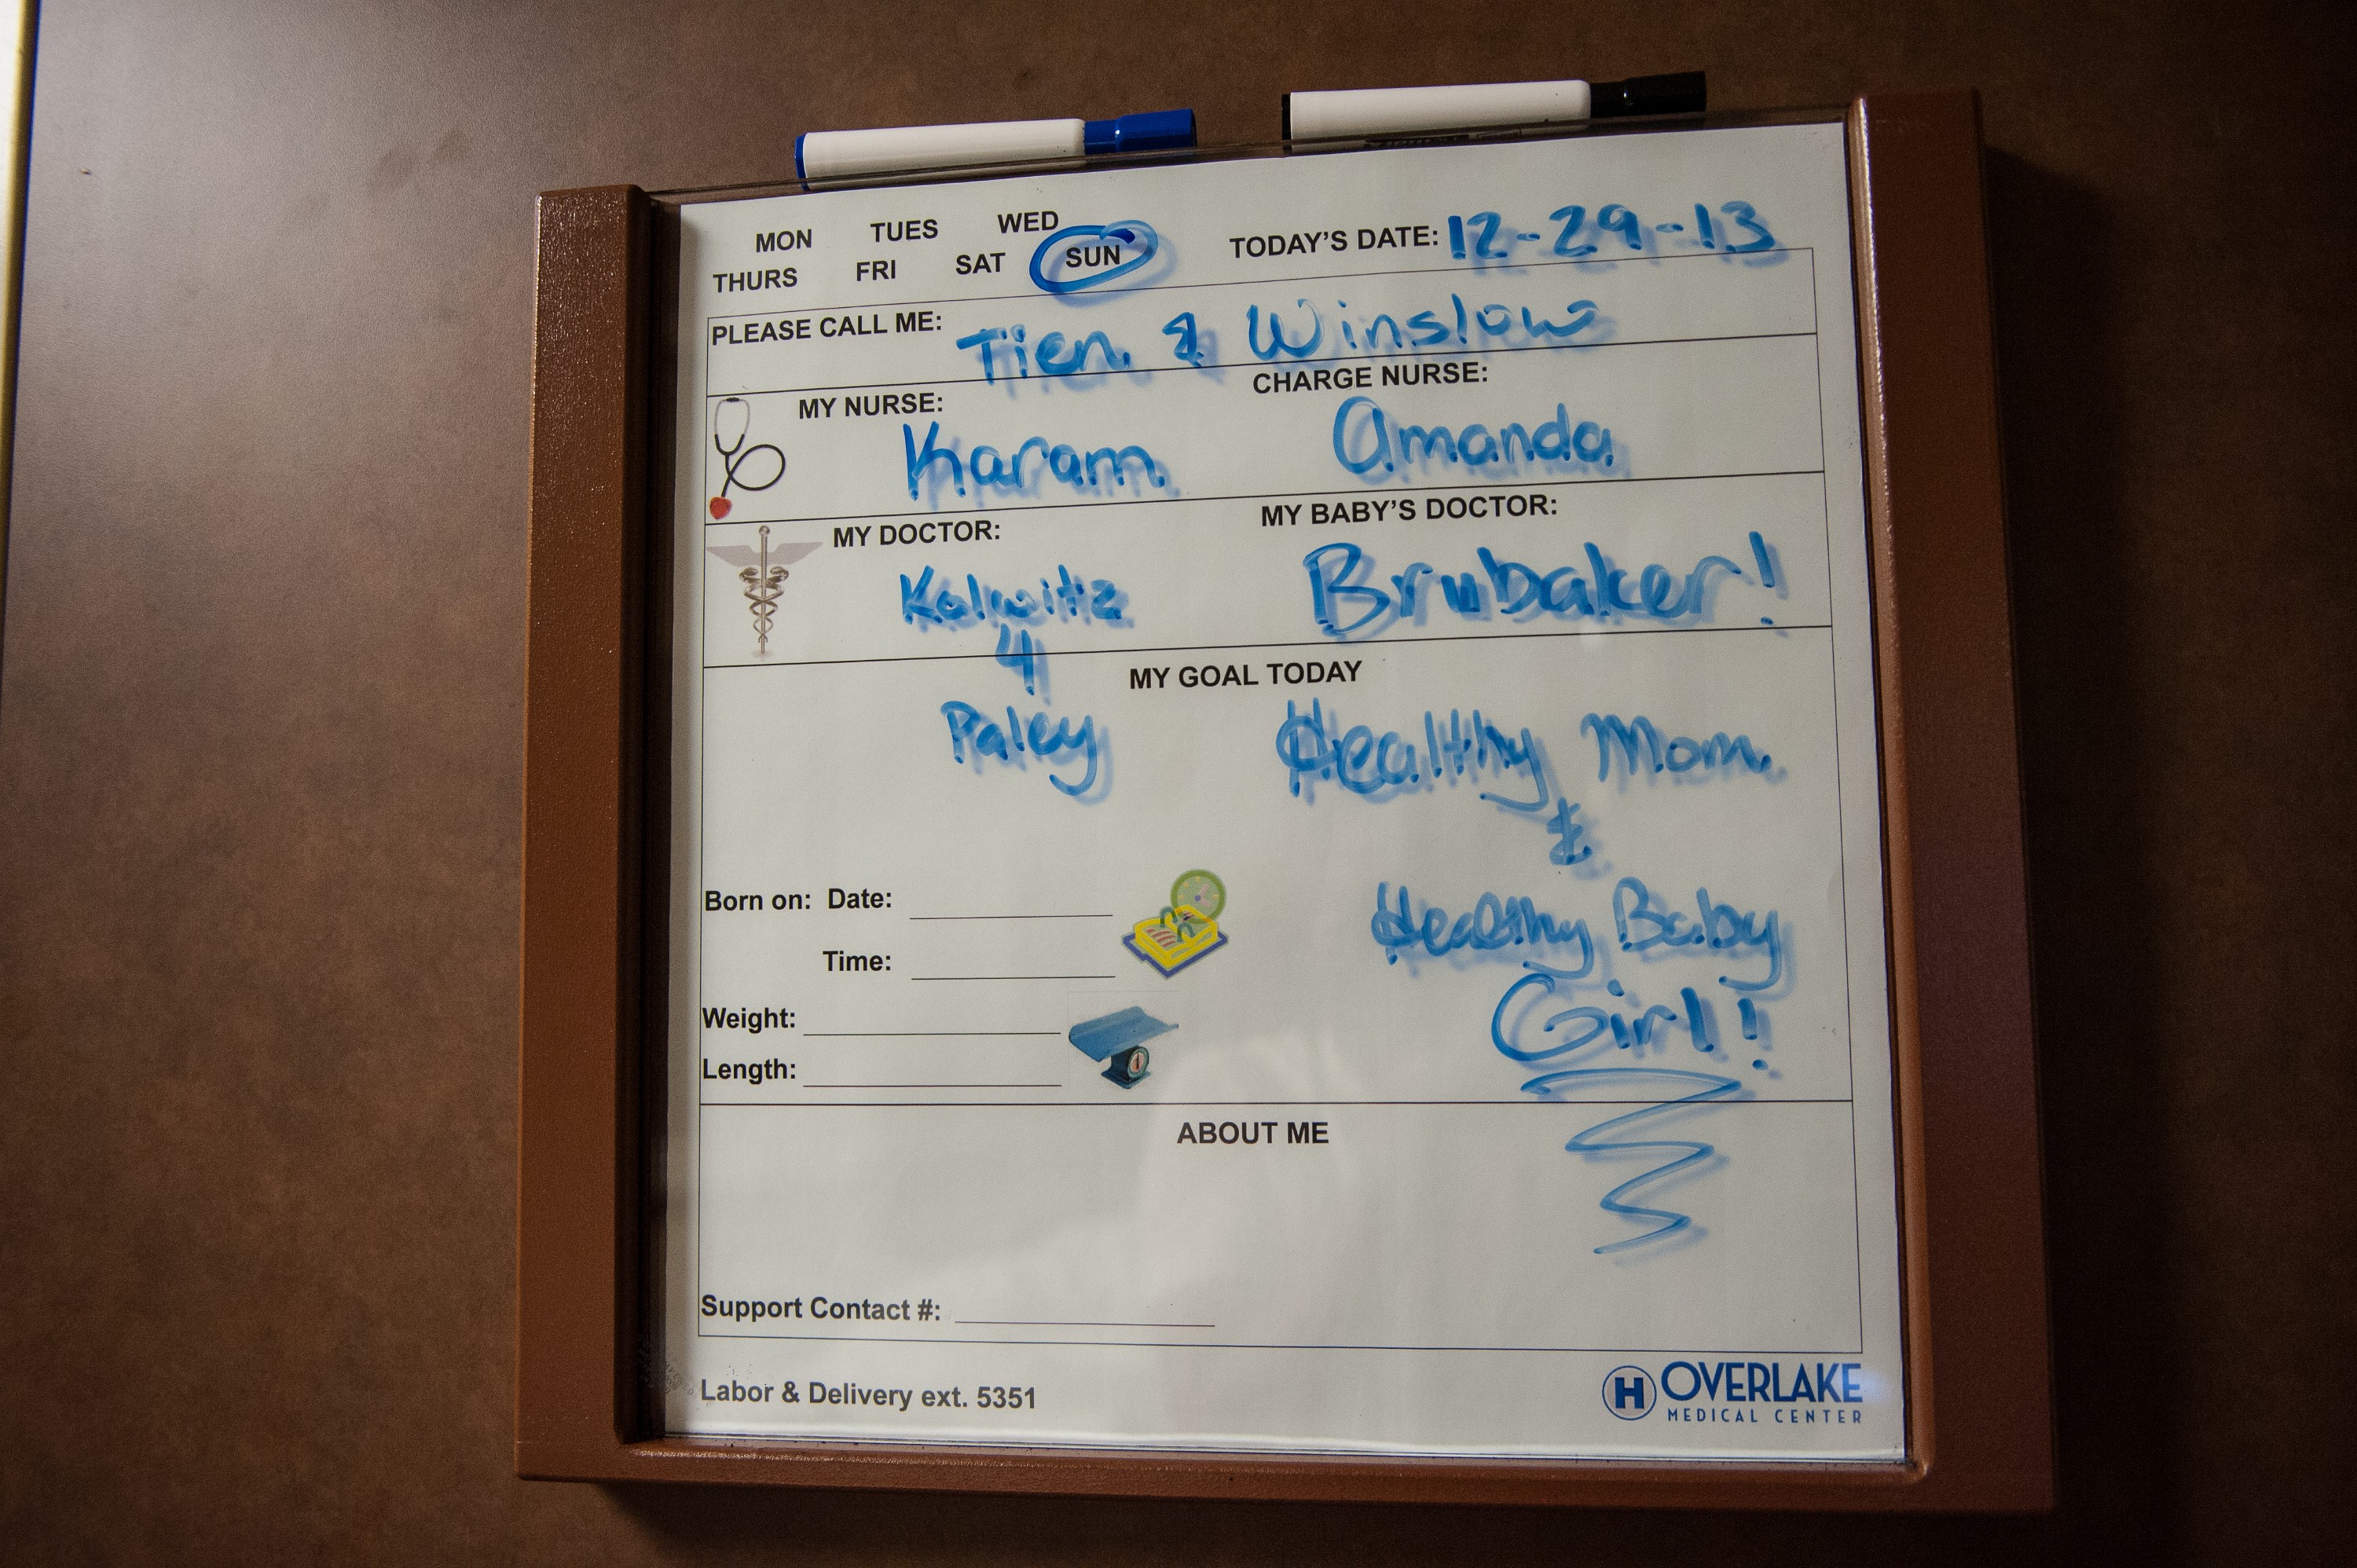 MON TUES WED
THURS FRI SAT SUN
TODAY'S DATE: 12-29-13
PLEASE CALL ME: Tien & Winslow
MY NURSE: CHARGE NURSE:
Karam Amanda
MY DOCTOR: MY BABY'S DOCTOR:
Kolwitz Brubaker!
&
Paley
MY GOAL TODAY
Healthy Mom
&
Healthy Baby
Girl!
Born on: Date:
Time:
Weight:
Length:
ABOUT ME
Support Contact #:
Labor & Delivery ext. 5351
H OVERLAKE
MEDICAL CENTER